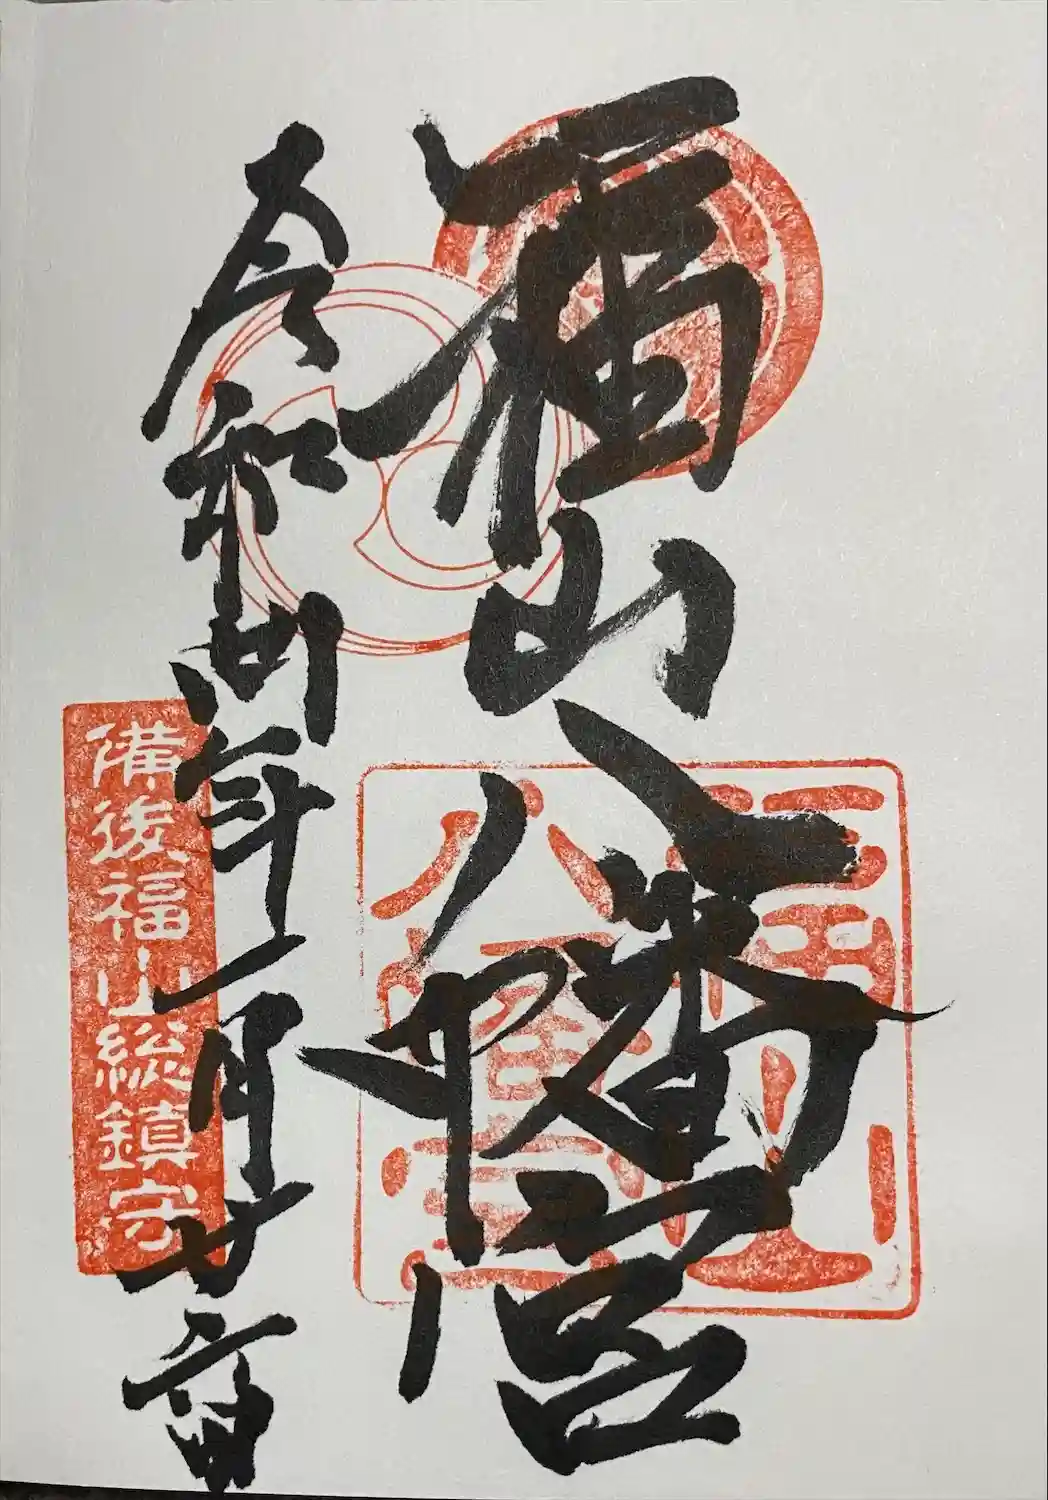 福山八幡宮
令和四年一月廿六日
備後福山総鎮守
福山八幡宮